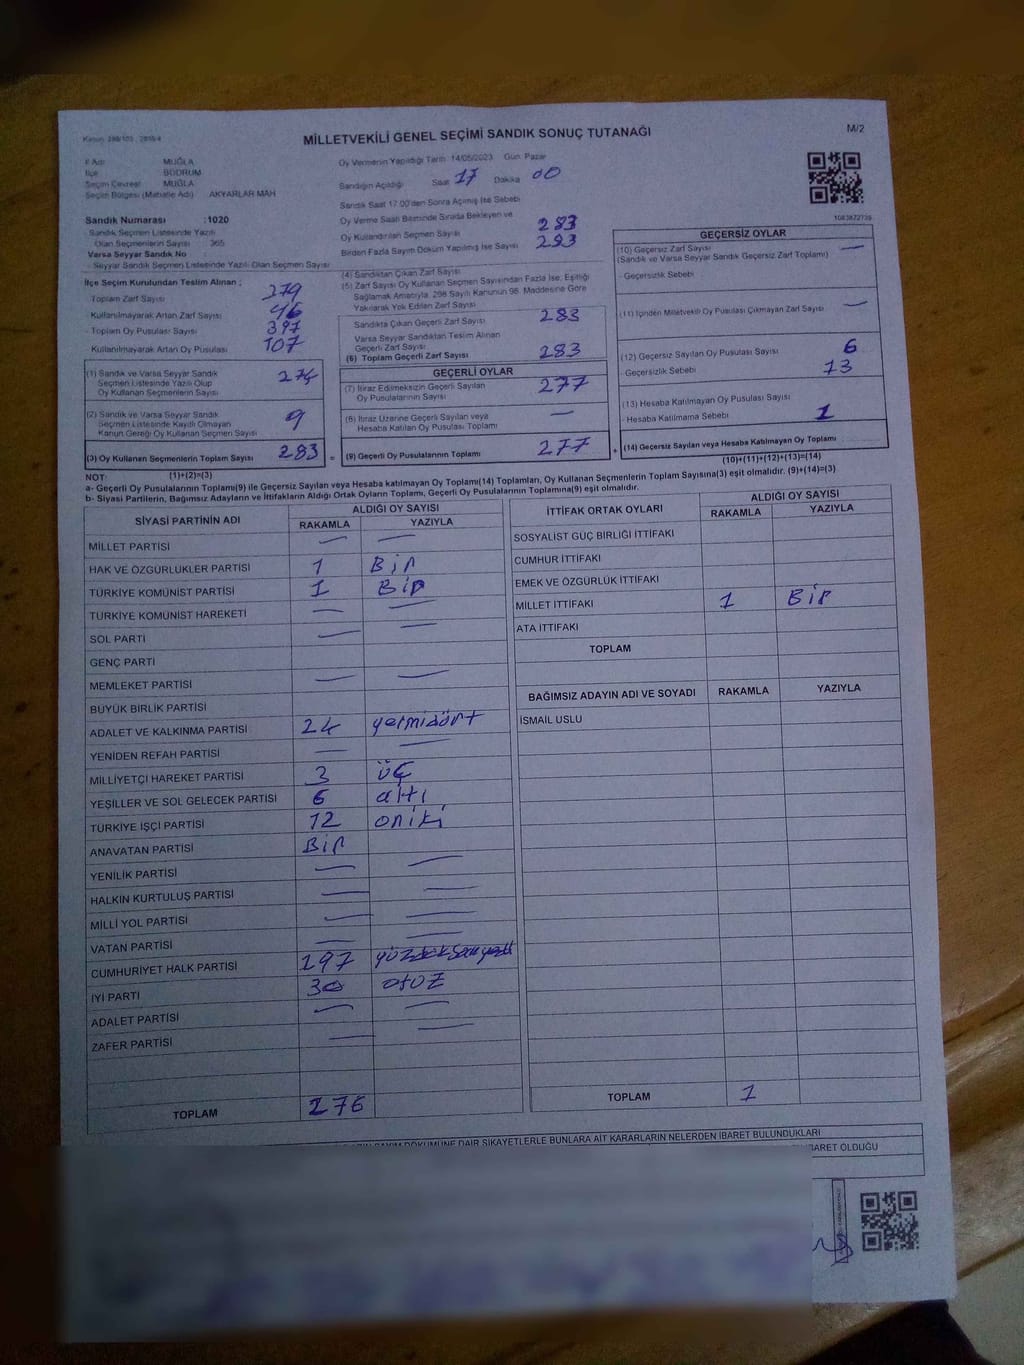 MİLLETVEKİLİ GENEL SEÇİMİ SANDIK SONUÇ TUTANAĞI
M/2
İl Adı MUĞLA
İlçe BODRUM
Seçim Çevresi MUĞLA
Seçim Bölgesi (Mahalle Adı) AKYARLAR MAH
Sandık Numarası :1020
Sandık Seçmen Listesinde Yazılı
Olan Seçmenlerin Sayısı 365
Varsa Seyyar Sandık No
Seyyar Sandık Seçmen Listesinde Yazılı Olan Seçmen Sayısı
Oy Vermenin Yapıldığı Tarih :14/05/2023 Gün: Pazar
Sandığın Açıldığı Saat 17 Dakika 00
Sandık Saat 17.00'den Sonra Açılmış İse Sebebi
Oy Verme Saati Bitiminde Sırada Bekleyen ve
Oy Kullandırılan Seçmen Sayısı 283
Birden Fazla Sayım Döküm Yapılmış İse Sayısı 283
1083872739
İlçe Seçim Kurulundan Teslim Alınan ;
Toplam Zarf Sayısı 379
Kullanılmayarak Artan Zarf Sayısı 96
Toplam Oy Pusulası Sayısı 397
Kullanılmayarak Artan Oy Pusulası 107
(1) Sandık ve Varsa Seyyar Sandık
Seçmen Listesinde Yazılı Olup
Oy Kullanan Seçmenlerin Sayısı 274
(2) Sandık ve Varsa Seyyar Sandık
Seçmen Listesinde Kayıtlı Olmayan
Kanun Gereği Oy Kullanan Seçmen Sayısı 9
(3) Oy Kullanan Seçmenlerin Toplam Sayısı 283 =
(4) Sandıktan Çıkan Zarf Sayısı
(5) Zarf Sayısı Oy Kullanan Seçmen Sayısından Fazla İse; Eşitliği
Sağlamak Amacıyla, 298 Sayılı Kanunun 98. Maddesine Göre
Yakılarak Yok Edilen Zarf Sayısı
Sandıkta Çıkan Geçerli Zarf Sayısı 283
Varsa Seyyar Sandıktan Teslim Alınan
Geçerli Zarf Sayısı
(6) Toplam Geçerli Zarf Sayısı 283
GEÇERLİ OYLAR
(7) İtiraz Edilmeksizin Geçerli Sayılan
Oy Pusulalarının Sayısı 277
(8) İtiraz Üzerine Geçerli Sayılan veya
Hesaba Katılan Oy Pusulası Toplamı —
(9) Geçerli Oy Pusulalarının Toplamı 277 +
GEÇERSİZ OYLAR
(10) Geçersiz Zarf Sayısı —
(Sandık ve Varsa Seyyar Sandık Geçersiz Zarf Toplamı)
Geçersizlik Sebebi
(11) İçinden Milletvekili Oy Pusulası Çıkmayan Zarf Sayısı —
(12) Geçersiz Sayılan Oy Pusulası Sayısı 6
Geçersizlik Sebebi 13
(13) Hesaba Katılmayan Oy Pusulası Sayısı
Hesaba Katılmama Sebebi 1
(14) Geçersiz Sayılan veya Hesaba Katılmayan Oy Toplamı
(10)+(11)+(12)+(13)=(14)
NOT: (1)+(2)=(3)
a- Geçerli Oy Pusulaları Toplamı(9) ile Geçersiz Sayılan veya Hesaba katılmayan Oy Toplamı(14) Toplamları, Oy Kullanan Seçmenlerin Toplam Sayısına(3) eşit olmalıdır. (9)+(14)=(3)
b- Siyasi Partilerin, Bağımsız Adayların ve İttifakların Aldığı Ortak Oyların Toplamı, Geçerli Oy Pusulalarının Toplamına(9) eşit olmalıdır.
SİYASİ PARTİNİN ADI ALDIĞI OY SAYISI
RAKAMLA YAZIYLA
MİLLET PARTİSİ — —
HAK VE ÖZGÜRLÜKLER PARTİSİ 1 Bir
TÜRKİYE KOMÜNİST PARTİSİ 1 Bir
TÜRKİYE KOMÜNİST HAREKETİ — —
SOL PARTİ — —
GENÇ PARTİ
MEMLEKET PARTİSİ — —
BÜYÜK BİRLİK PARTİSİ
ADALET VE KALKINMA PARTİSİ 24 yermidört
YENİDEN REFAH PARTİSİ — —
MİLLİYETÇİ HAREKET PARTİSİ 3 üç
YEŞİLLER VE SOL GELECEK PARTİSİ 6 altı
TÜRKİYE İŞÇİ PARTİSİ 12 oniki
ANAVATAN PARTİSİ Bir
YENİLİK PARTİSİ — —
HALKIN KURTULUŞ PARTİSİ — —
MİLLİ YOL PARTİSİ — —
VATAN PARTİSİ — —
CUMHURİYET HALK PARTİSİ 197
İYİ PARTİ 30 otuz
ADALET PARTİSİ — —
ZAFER PARTİSİ — —
TOPLAM 276
İTTİFAK ORTAK OYLARI ALDIĞI OY SAYISI
RAKAMLA YAZIYLA
SOSYALİST GÜÇ BİRLİĞİ İTTİFAKI
CUMHUR İTTİFAKI
EMEK VE ÖZGÜRLÜK İTTİFAKI
MİLLET İTTİFAKI 1 Bir
ATA İTTİFAKI
TOPLAM
BAĞIMSIZ ADAYIN ADI VE SOYADI RAKAMLA YAZIYLA
İSMAİL USLU
TOPLAM 1
DÖKÜMÜNE DAİR ŞİKAYETLERLE BUNLARA AİT KARARLARIN NELERDEN İBARET BULUNDUKLARI
İBARET OLDUĞU